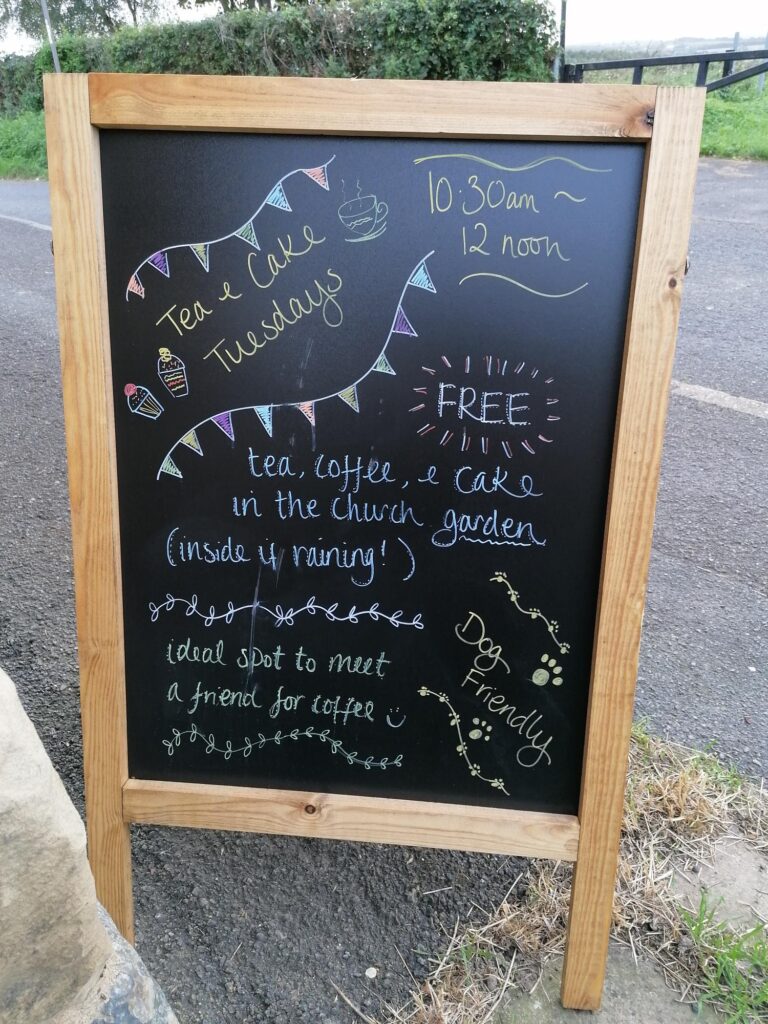 Tea & Cake
Tuesdays
10.30am ~
12 noon
FREE
tea, coffee, & cake
in the church garden
(inside if raining!)
ideal spot to meet
a friend for coffee
Dog
Friendly